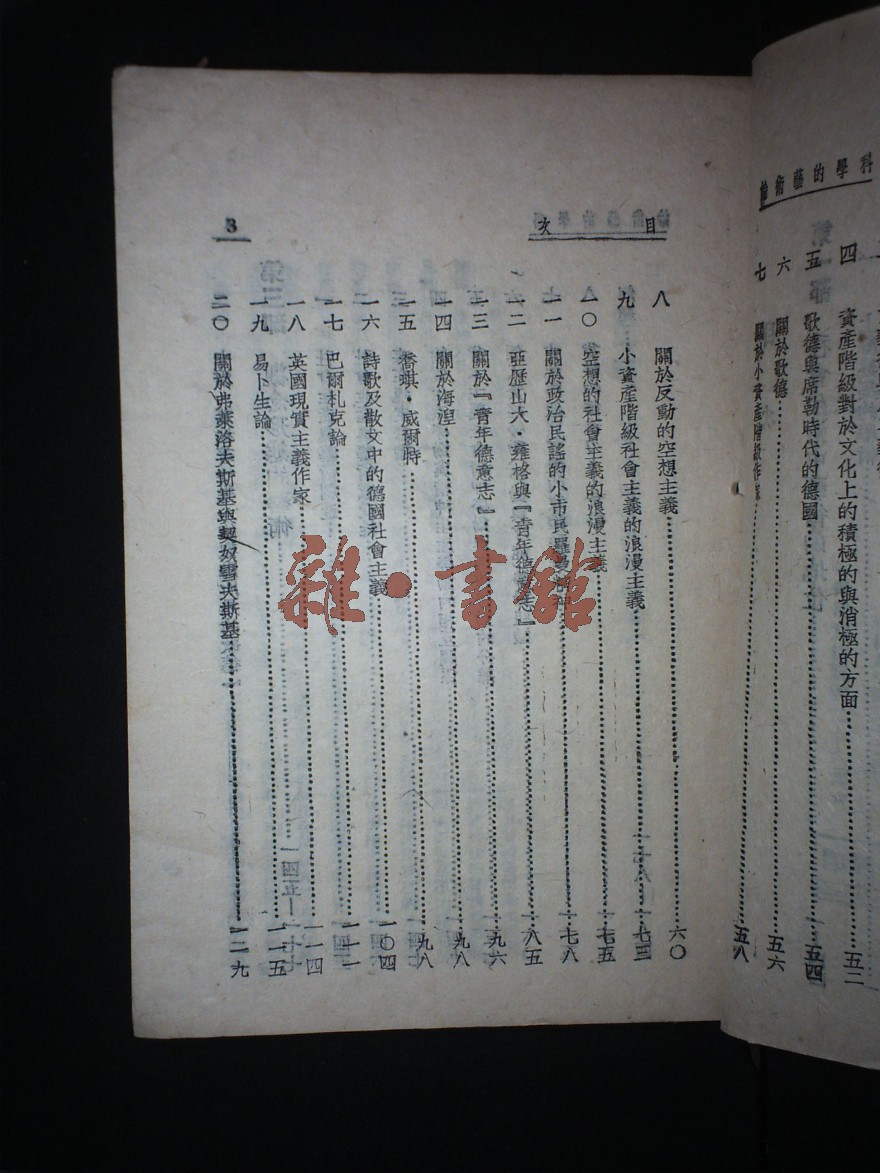 科學的藝術論
四　資產階級對於文化上的積極的與消極的方面……五二
五　歌德與席勒時代的德國……五四
六　關於歌德……五六
七　關於小資產階級作家……五八
目次　3
八　關於反動的空想主義……六〇
九　小資產階級社會主義的浪漫主義……七三
一〇　空想的社會主義的浪漫主義……七五
一一　關於政治民謠的小市民……七八
一二　亞歷山大·雍格與『青年德意志』……八五
一三　關於『青年德意志』……九六
一四　關於海涅……九八
一五　喬琪·威爾特……九八
一六　詩歌及散文中的德國社會主義……一〇四
一七　巴爾札克論……一一一
一八　英國現實主義作家……一一四
一九　易卜生論……一一五
二〇　關於弗萊洛夫斯基與契奴雪夫斯基……一二九
雜·書館